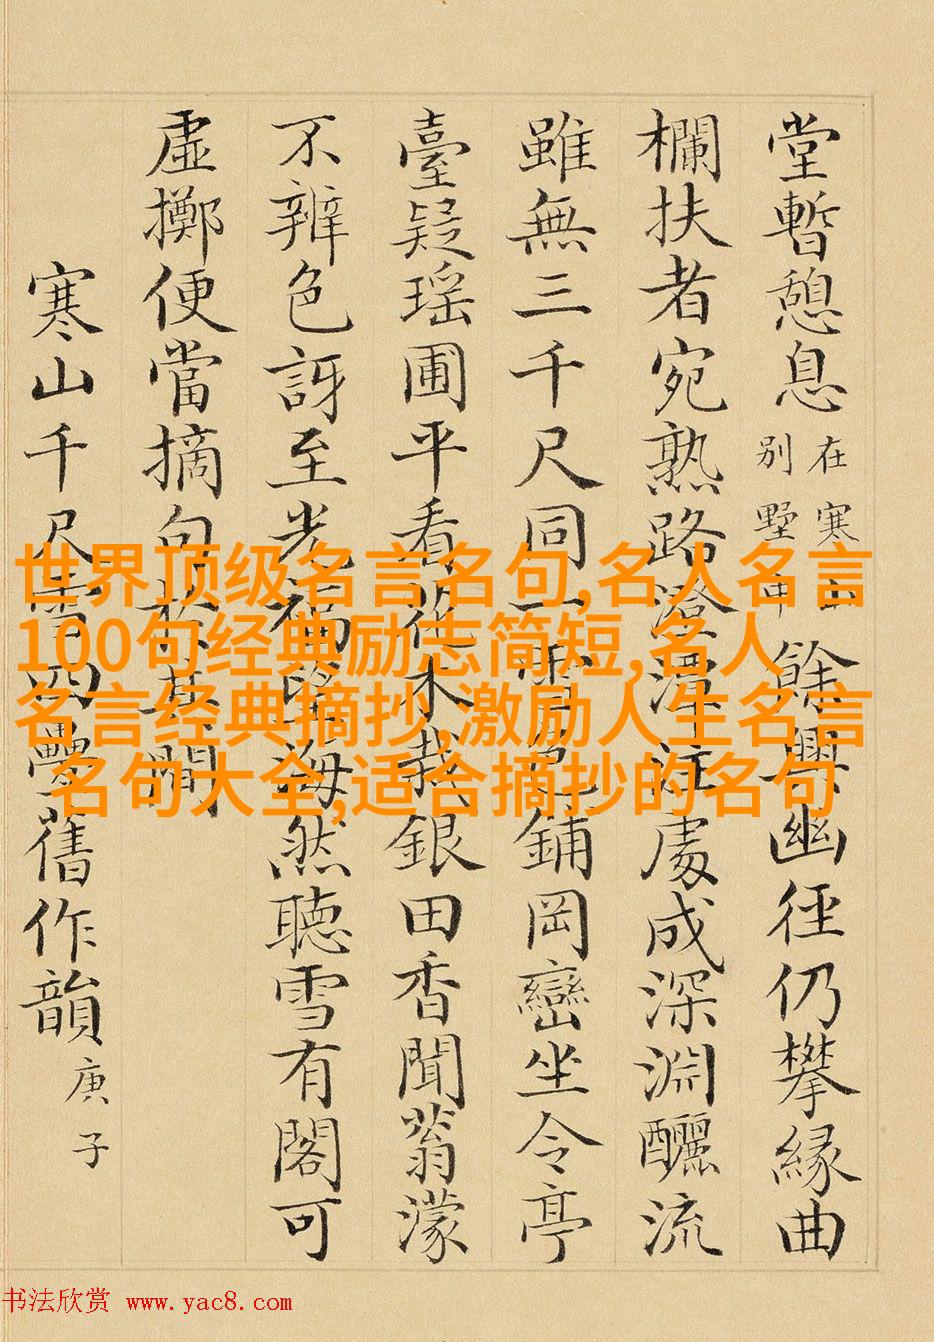 堂暫憩息在寒山別墅中餘興幽徑仍攀緣曲
欄扶者宛熟路澄潭注處成深淵釃流
雖無三千尺同一雪色鋪岡巒坐令亭
臺疑瑤圃平看花木栽銀田香聞蓊濛
不辨色訝至光福海然聽雪有閣可
虛擲便當摘句於其間
寒山千尺雪四疊舊作韻庚子
世界顶级名言名句,名人名言
100句经典励志简短,名人
名言经典摘抄,激励人生名言
名句大全,适合摘抄的名句
书法欣赏 www.yac8.com